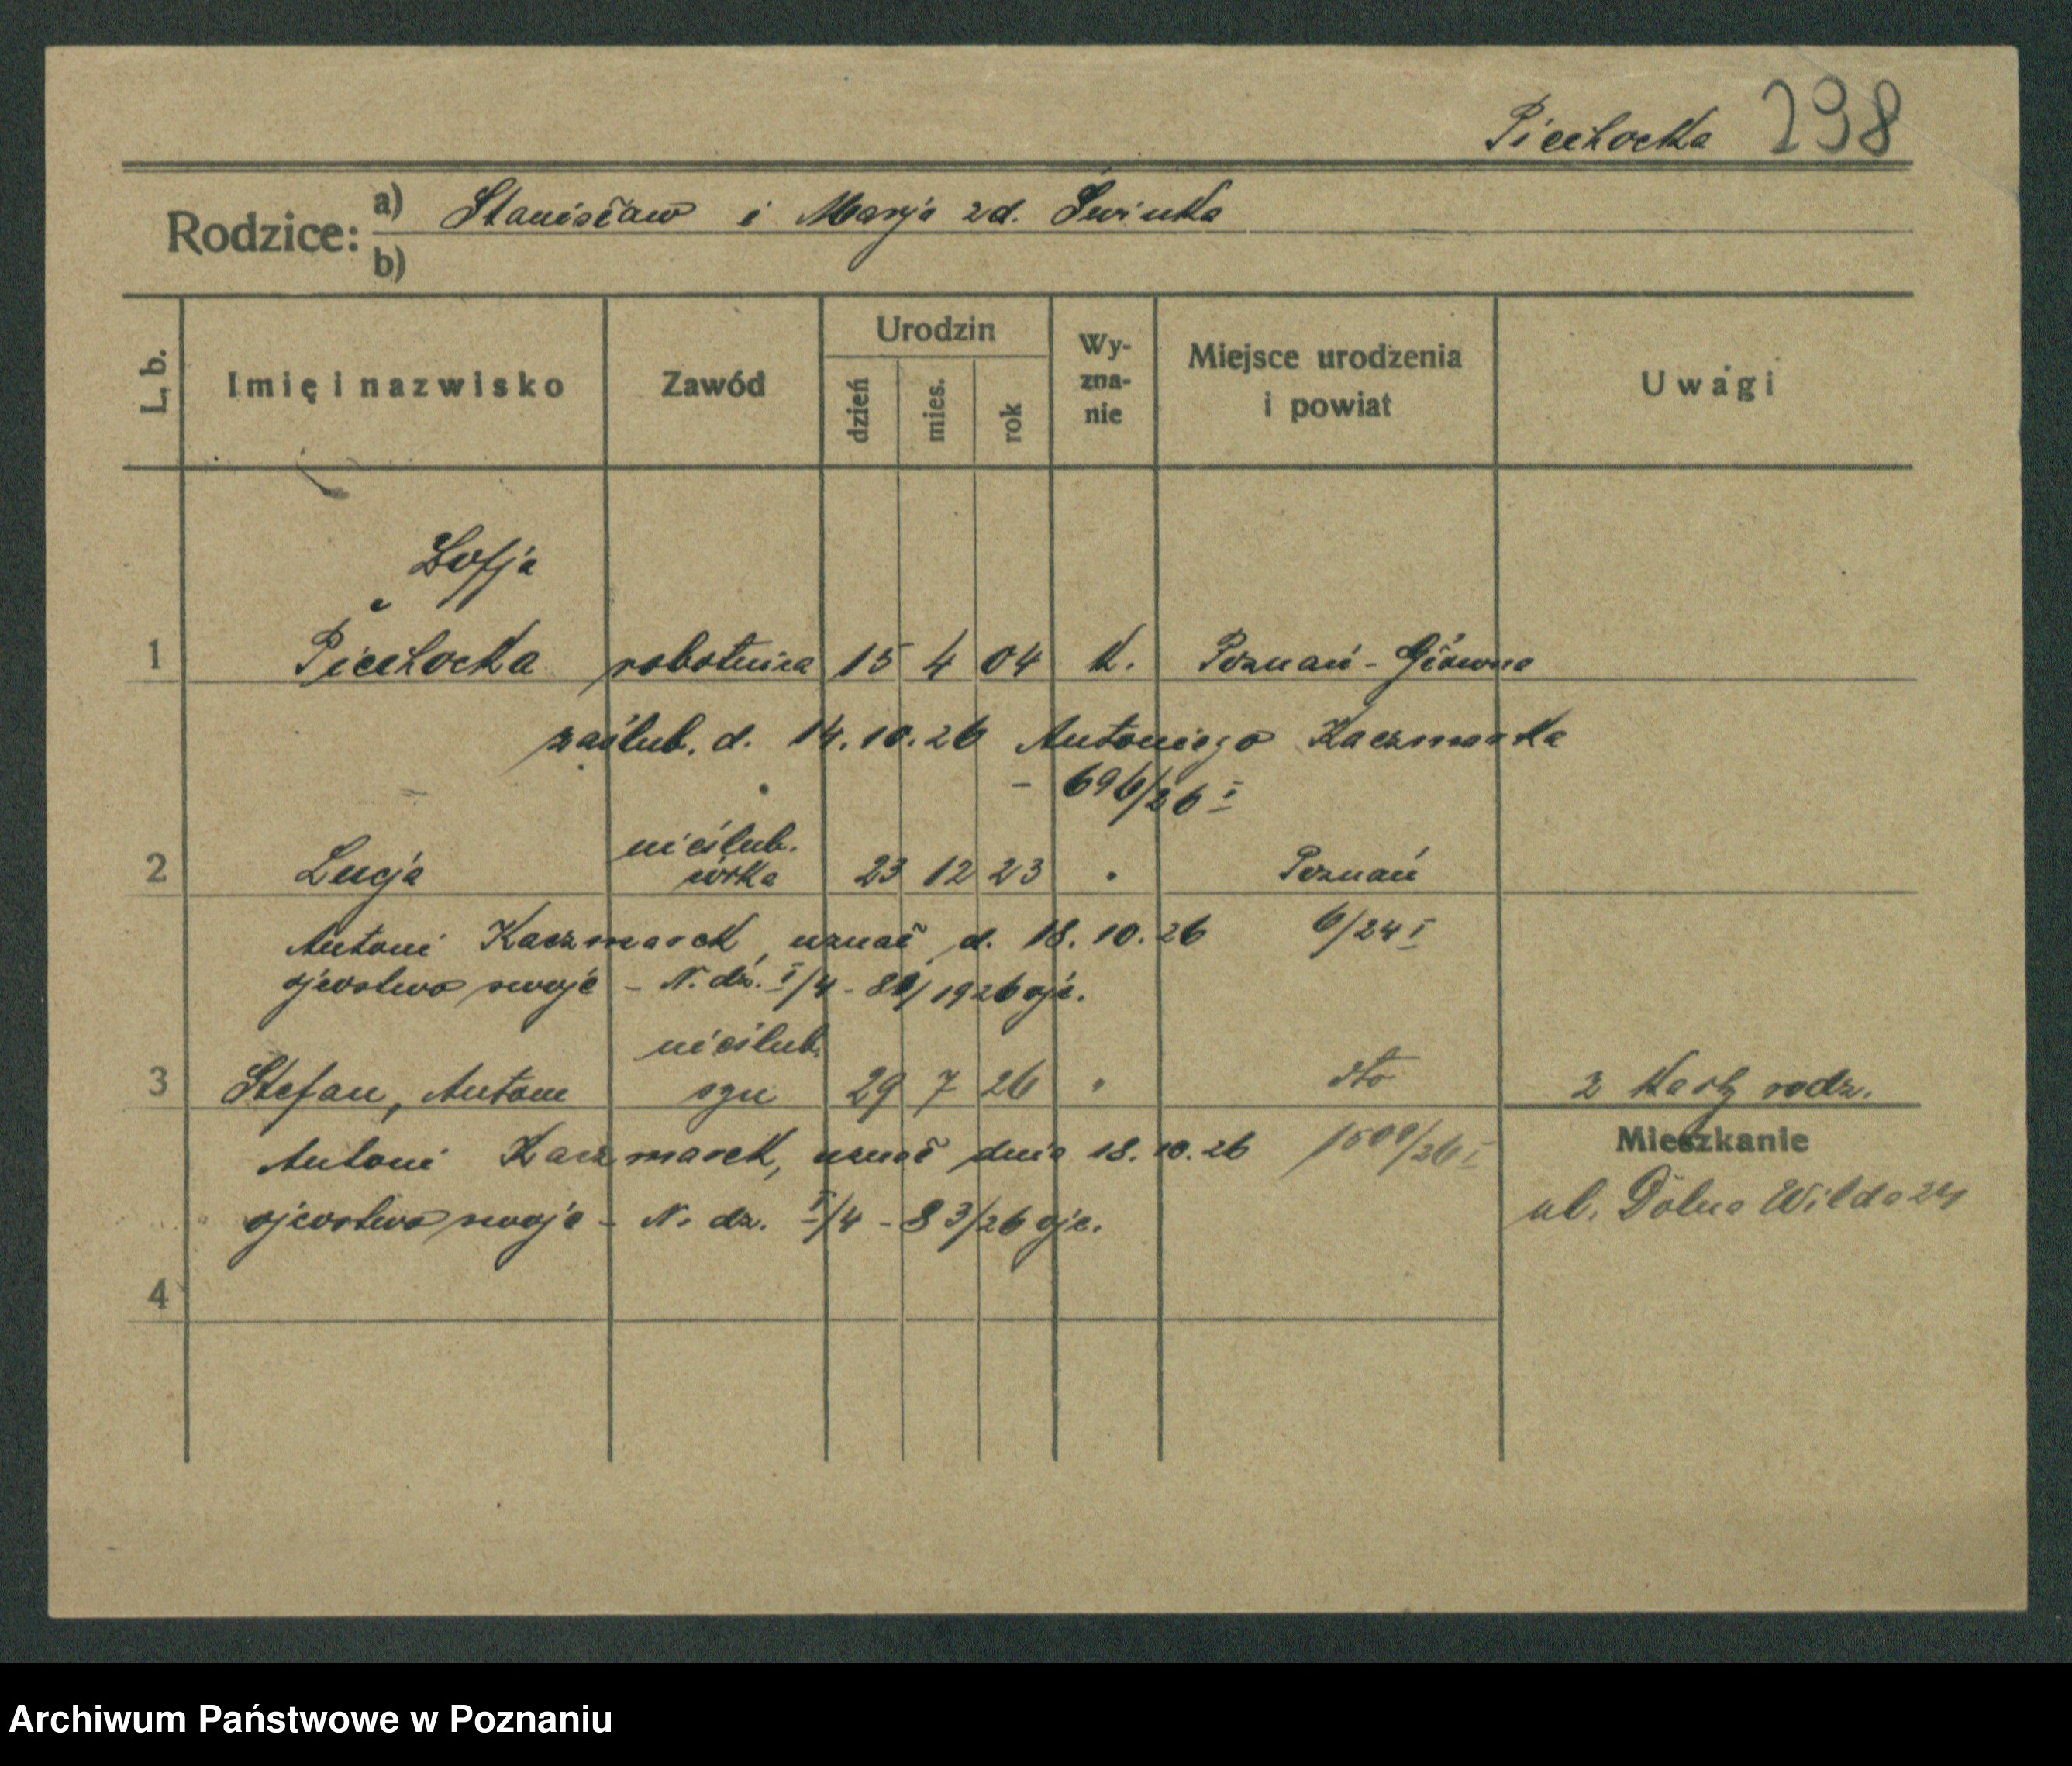 Piechocka 298
Rodzice: a) Stanisław i Marja zd. Świnka
b)
L. b. Imię i nazwisko Zawód Urodzin dzień mies. rok Wyznanie Miejsce urodzenia i powiat Uwagi
Zofja
1 Piechocka robotnica 15 4 04 k. Poznań-Główna
zaślub. d. 14.10.26 Antoniego Kaczmarka
- 696/26 I
nieślub.
2 Lucja córka 23 12 23 " Poznań
Antoni Kaczmarek, uznał d. 18.10.26 6/24 I
ojcostwo swoje - N. dz. I/4 - /1926 ojc.
nieślub.
3 Stefan, Antoni syn 29 7 26 " dto 2 Karty rodz.
Antoni Kaczmarek, uznał dnia 18.10.26 1509/26 I Mieszkanie
ojcostwo swoje - N. dz. I/4 - 83/26 ojc. ul. Dolna Wilda 24
4
Archiwum Państwowe w Poznaniu